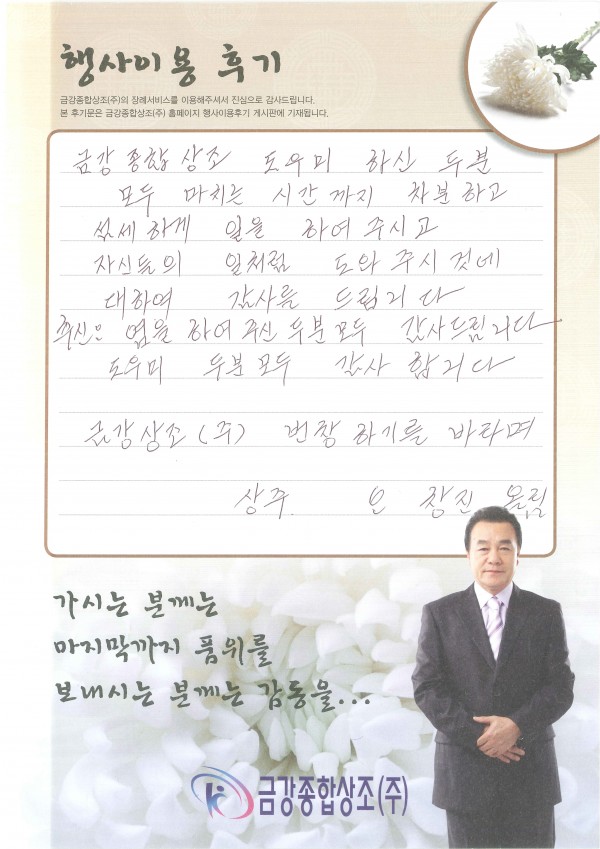 행사이용 후기
금강종합상조(주)의 장례서비스를 이용해주셔서 진심으로 감사드립니다.
본 후기문은 금강종합상조(주) 홈페이지 행사이용후기 게시판에 기재됩니다.
금강 종합 상조 도우미 하신 두분
모두 마치는 시간 까지 차분 하고
섬세하게 일을 하여 주시고
자신들의 일처럼 도와 주시 것네
대하여 감사를 드립니다
염을 하여 주신 두분 모두 감사드립니다
도우미 두분 모두 감사 합니다
금강상조 (주) 번창 하기를 바라며
상주. 오 창진 올림
가시는 분께는
마지막까지 품위를
보내시는 분께는 감동을...
금강종합상조(주)